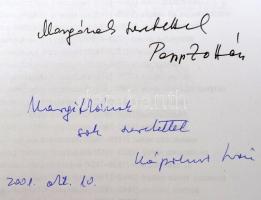 Margónak szeretettel
Papp Zoltán
Margitkának
sok szeretettel
Kápolnás Iván
2001. okt. 10.